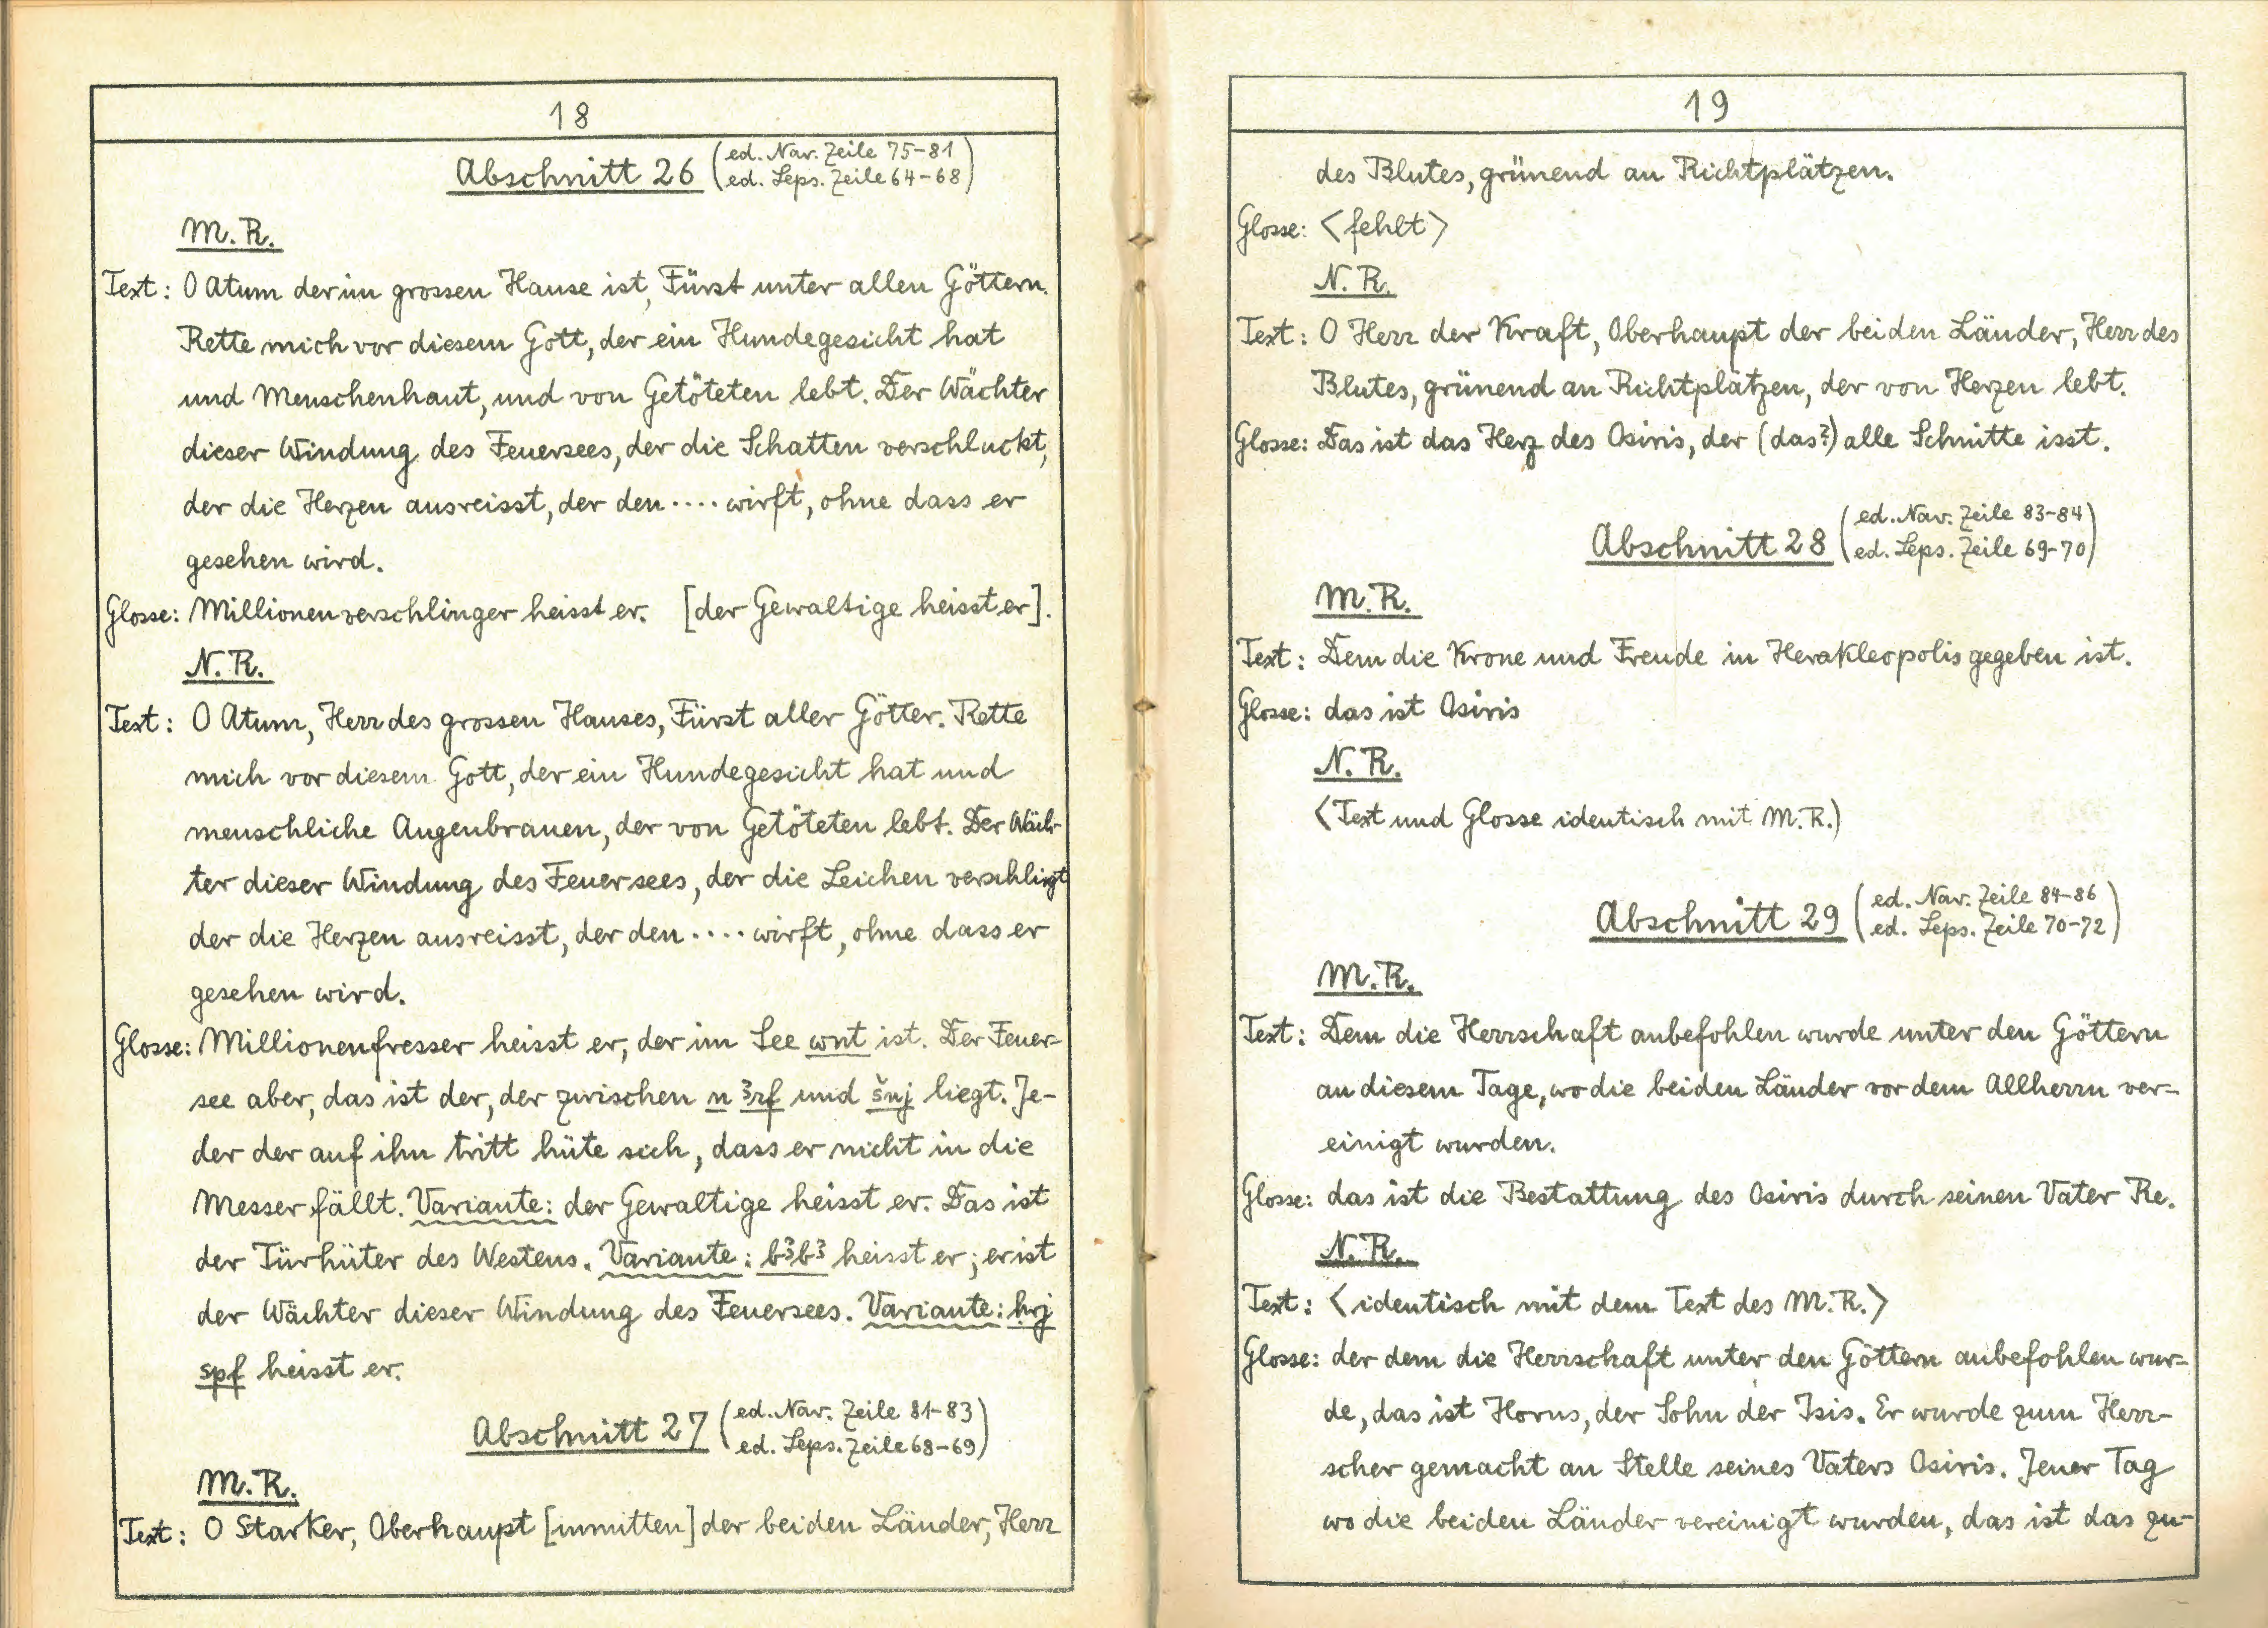 18
Abschnitt 26 (ed. Nav. Zeile 75-81
ed. Leps. Zeile 64-68)
M.R.
Text: O Atum der im grossen Hause ist, Fürst unter allen Göttern.
Rette mich vor diesem Gott, der ein Hundegesicht hat
und Menschenhaut, und von Getöteten lebt. Der Wächter
dieser Windung des Feuersees, der die Schatten verschluckt,
der die Herzen ausreisst, der den .... wirft, ohne dass er
gesehen wird.
Glosse: Millionenverschlinger heisst er. [der Gewaltige heisst er].
N.R.
Text: O Atum, Herr des grossen Hauses, Fürst aller Götter. Rette
mich vor diesem Gott, der ein Hundegesicht hat und
menschliche Augenbrauen, der von Getöteten lebt. Der Wäch-
ter dieser Windung des Feuersees, der die Leichen verschlingt
der die Herzen ausreisst, der den .... wirft, ohne dass er
gesehen wird.
Glosse: Millionenfresser heisst er, der im See wnt ist. Der Feuer-
see aber, das ist der, der zwischen n ꜣrf und šnj liegt. Je-
der der auf ihn tritt hüte sich, dass er nicht in die
Messer fällt. Variante: der Gewaltige heisst er. Das ist
der Türhüter des Westens. Variante: bꜣbꜣ heisst er; er ist
der Wächter dieser Windung des Feuersees. Variante: ḥrj
spf heisst er.
Abschnitt 27 (ed. Nav. Zeile 81-83
ed. Leps. Zeile 68-69)
M.R.
Text: O Starker, Oberhaupt [inmitten] der beiden Länder, Herr
19
des Blutes, grünend an Richtplätzen.
Glosse: <fehlt>
N.R.
Text: O Herr der Kraft, Oberhaupt der beiden Länder, Herr des
Blutes, grünend an Richtplätzen, der von Herzen lebt.
Glosse: Das ist das Herz des Osiris, der (das?) alle Schnitte isst.
Abschnitt 28 (ed. Nav. Zeile 83-84
ed. Leps. Zeile 69-70)
M.R.
Text: Dem die Krone und Freude in Herakleopolis gegeben ist.
Glosse: das ist Osiris
N.R.
<Text und Glosse identisch mit M.R.)
Abschnitt 29 (ed. Nav. Zeile 84-86
ed. Leps. Zeile 70-72)
M.R.
Text: Dem die Herrschaft anbefohlen wurde unter den Göttern
an diesem Tage, wo die beiden Länder vor dem Allherrn ver-
einigt wurden.
Glosse: das ist die Bestattung des Osiris durch seinen Vater Re.
N.R.
Text: <identisch mit dem Text des M.R.>
Glosse: der dem die Herrschaft unter den Göttern anbefohlen wur-
de, das ist Horus, der Sohn der Isis. Er wurde zum Herr-
scher gemacht an Stelle seines Vaters Osiris. Jener Tag
wo die beiden Länder vereinigt wurden, das ist das zu-